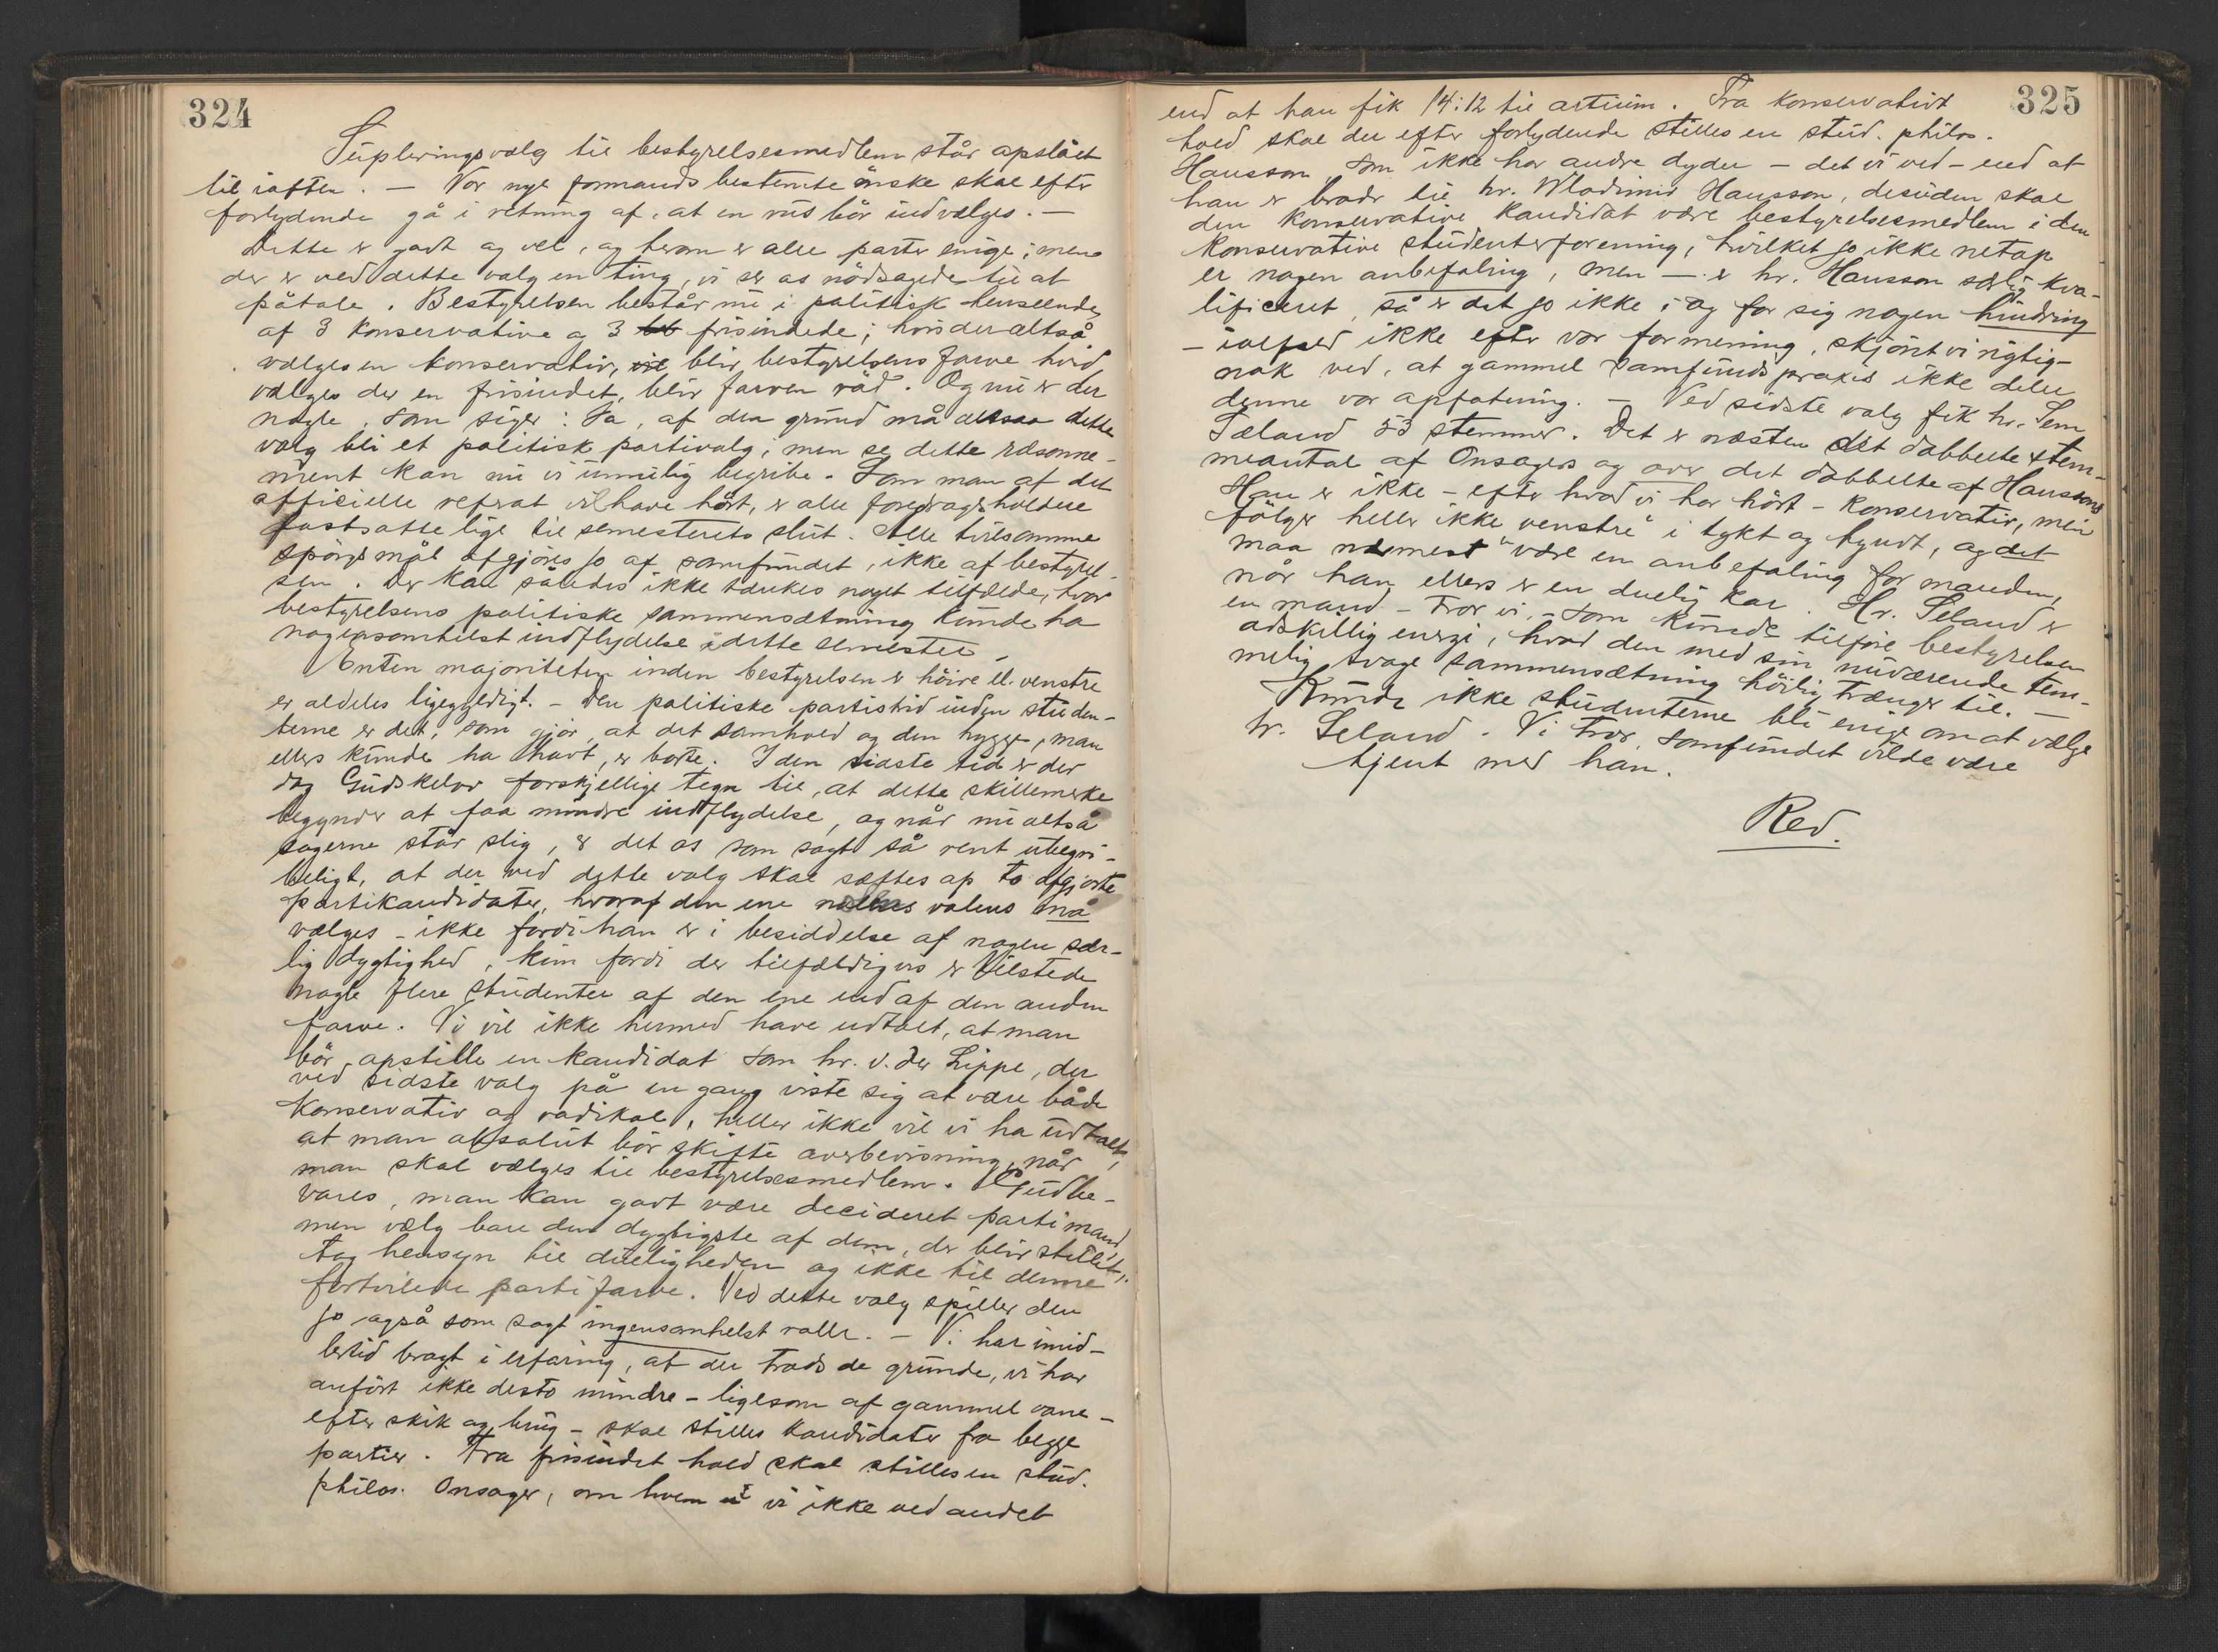 324
Supleringsvalg til bestyrelsesmedlem står opslået
til iaften. — Vor nye formands bestemte önske skal efter
forlydende gå i retning af, at en rus bör indvælges. —
Dette er godt og vel, og herom er alle parter enige; men
der er ved dette valg en ting, vi ser os nödsagede til at
påtale. Bestyrelsen består nu i politisk henseende
af 3 konservative og 3 frisindede; hvis der altså
vælges en konservativ, vil blir bestyrelsens farve hvid
vælges der en frisindet, blir farven röd. Og nu er der
nogle, som siger: Ja, af den grund må dette
valg bli et politisk partivalg; men se dette räsonne-
ment kan nu vi umulig begribe. Som man af det
officielle referat vil have hört, er alle foredragsholdere
fastsatte lige til semesterets slut. Alle tvilsomme
spörgsmål afgjöres jo af samfundet, ikke af bestyrel-
sen. Der kan således ikke tænkes noget tilfælde, hvor
bestyrelsens politiske sammensætning kunde ha
nogensomhelst indflydelse i dette semester.
Enten majoriteten inden bestyrelsen er höire el. venstre
er aldeles ligegyldigt. – Den politiske partistrid inden studen-
terne er det, som gjör, at det samhold og den hygge, man
ellers kunde ha havt, er borte. I den sidste tid er der
dog Gudskelov forskjellige tegn til, at dette skillemerke
begynder at faa mindre indflydelse, og når nu altså
sagerne står slig, er det os som sagt så rent ubegri-
beligt, at der ved dette valg skal sættes op to afgjorte
partikandidater, hvoraf den ene nolens volens må
vælges – ikke fordi han er i besiddelse af nogen sær-
lig dygtighed, kun fordi der tilfældigvis er tilstede
nogle flere studenter af den ene end af den anden
farve. Vi vil ikke hermed have udtalt, at man
bör opstille en kandidat som hr. v. der Lippe, der
ved sidste valg på en gang viste sig at være både
konservativ og radikal, heller ikke vil vi ha udtalt,
at man absolut bör skifte overbevisning, når
man skal vælges til bestyrelsesmedlem. Gudbe-
vares, man kan godt være decideret partimand,
men vælg bare den dygtigste af dem, der blir stillet,
tag hensyn til dueligheden og ikke til denne
fortvilede partifarve. Ved dette valg spiller den
jo også som sagt ingensomhelst rolle. – Vi har imid-
lertid bragt i erfaring, at der trods de grunde, vi har
anfört ikke desto mindre – ligesom af gammel vane –
efter skik og brug – skal stilles kandidater fra begge
partier. Fra frisindet hold skal stilles en stud.
philos. Onsager, om hvem vi ikke ved andet
325
end at han fik 14:12 til artium. Fra konservativt
hold skal der efter forlydende stilles en stud. philos.
Hansson, som ikke har andre dyder – det vi ved – end at
han er broder til hr. Wladimir Hansson, desuden skal
den konservative kandidat være bestyrelsesmedlem i den
konservative studenterforening, hvilket jo ikke netop
er nogen anbefaling, men — er hr. Hansson særlig kva-
lificeret, så er det jo ikke i og for sig nogen hindring
– ialfald ikke efter vor formening, skjönt vi rigtig-
nok ved, at gammel samfundspraxis ikke deler
denne vor opfatning. — Ved sidste valg fik hr. Sem
Sæland 53 stemmer. Det er næsten det dobbelte stem-
meantal af Onsagers og over det dobbelte af Hanssons
Han er ikke – efter hvad vi har hört – konservativ, men
fölger heller ikke venstre i tykt og tyndt, og det
maa nærmest være en anbefaling for manden,
når han ellers er en duelig kar. Hr. Seland er
en mand – tror vi, – som kunde tilföre bestyrelsen
adskillig energi, hvad den med sin nuværende tem-
melig svage sammensætning höilig trænger til. —
Kunde ikke studenterne bli enige om at vælge
hr. Seland. Vi tror, samfundet vilde være
tjent med han.
Red.